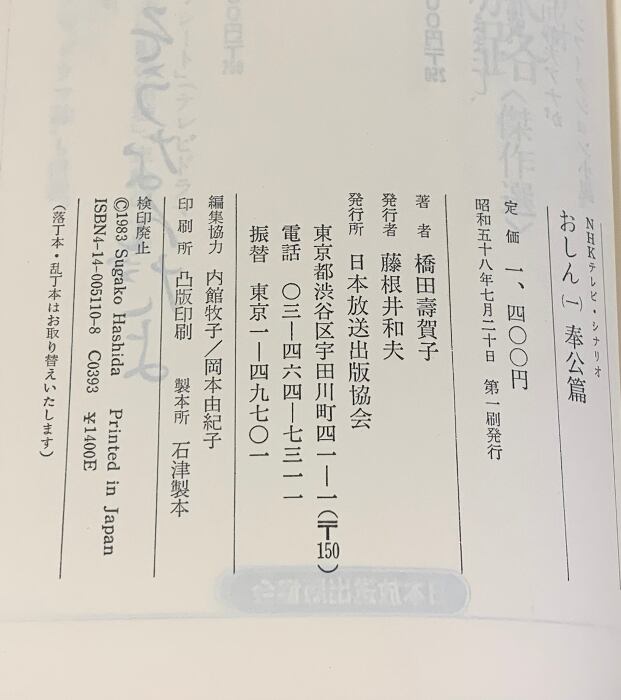 NHKテレビ・シナリオ
おしん㈠ 奉公篇
定価 一、四〇〇円
昭和五十八年七月二十日 第一刷発行
著者 橋田壽賀子
発行者 藤根井和夫
発行所 日本放送出版協会
東京都渋谷区宇田川町四一―一(〒150)
電話 〇三―四六四―七三一一
振替 東京一―四九七〇一
編集協力 内館牧子/岡本由紀子
印刷所 凸版印刷 製本所 石津製本
検印廃止
©1983 Sugako Hashida Printed in Japan
ISBN4-14-005110-8 C0393 ¥1400E
(落丁本・乱丁本はお取り替えいたします)